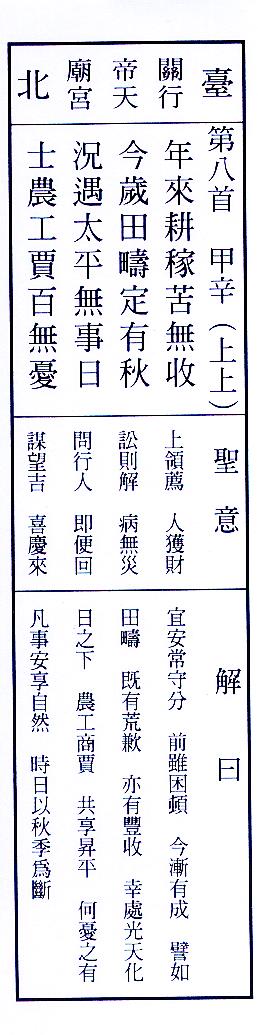 臺
關行
帝天
廟宮
北
第八首　甲辛（上上）
年來耕稼苦無收
今歲田疇定有秋
況遇太平無事日
士農工賈百無憂
聖意
上領薦　人獲財
訟則解　病無災
問行人　即便回
謀望吉　喜慶來
解曰
宜安常守分　前雖困頓　今漸有成　譬如
田疇　既有荒歉　亦有豐收　幸處光天化
日之下　農工商賈　共享昇平　何憂之有
凡事安享自然　時日以秋季為斷